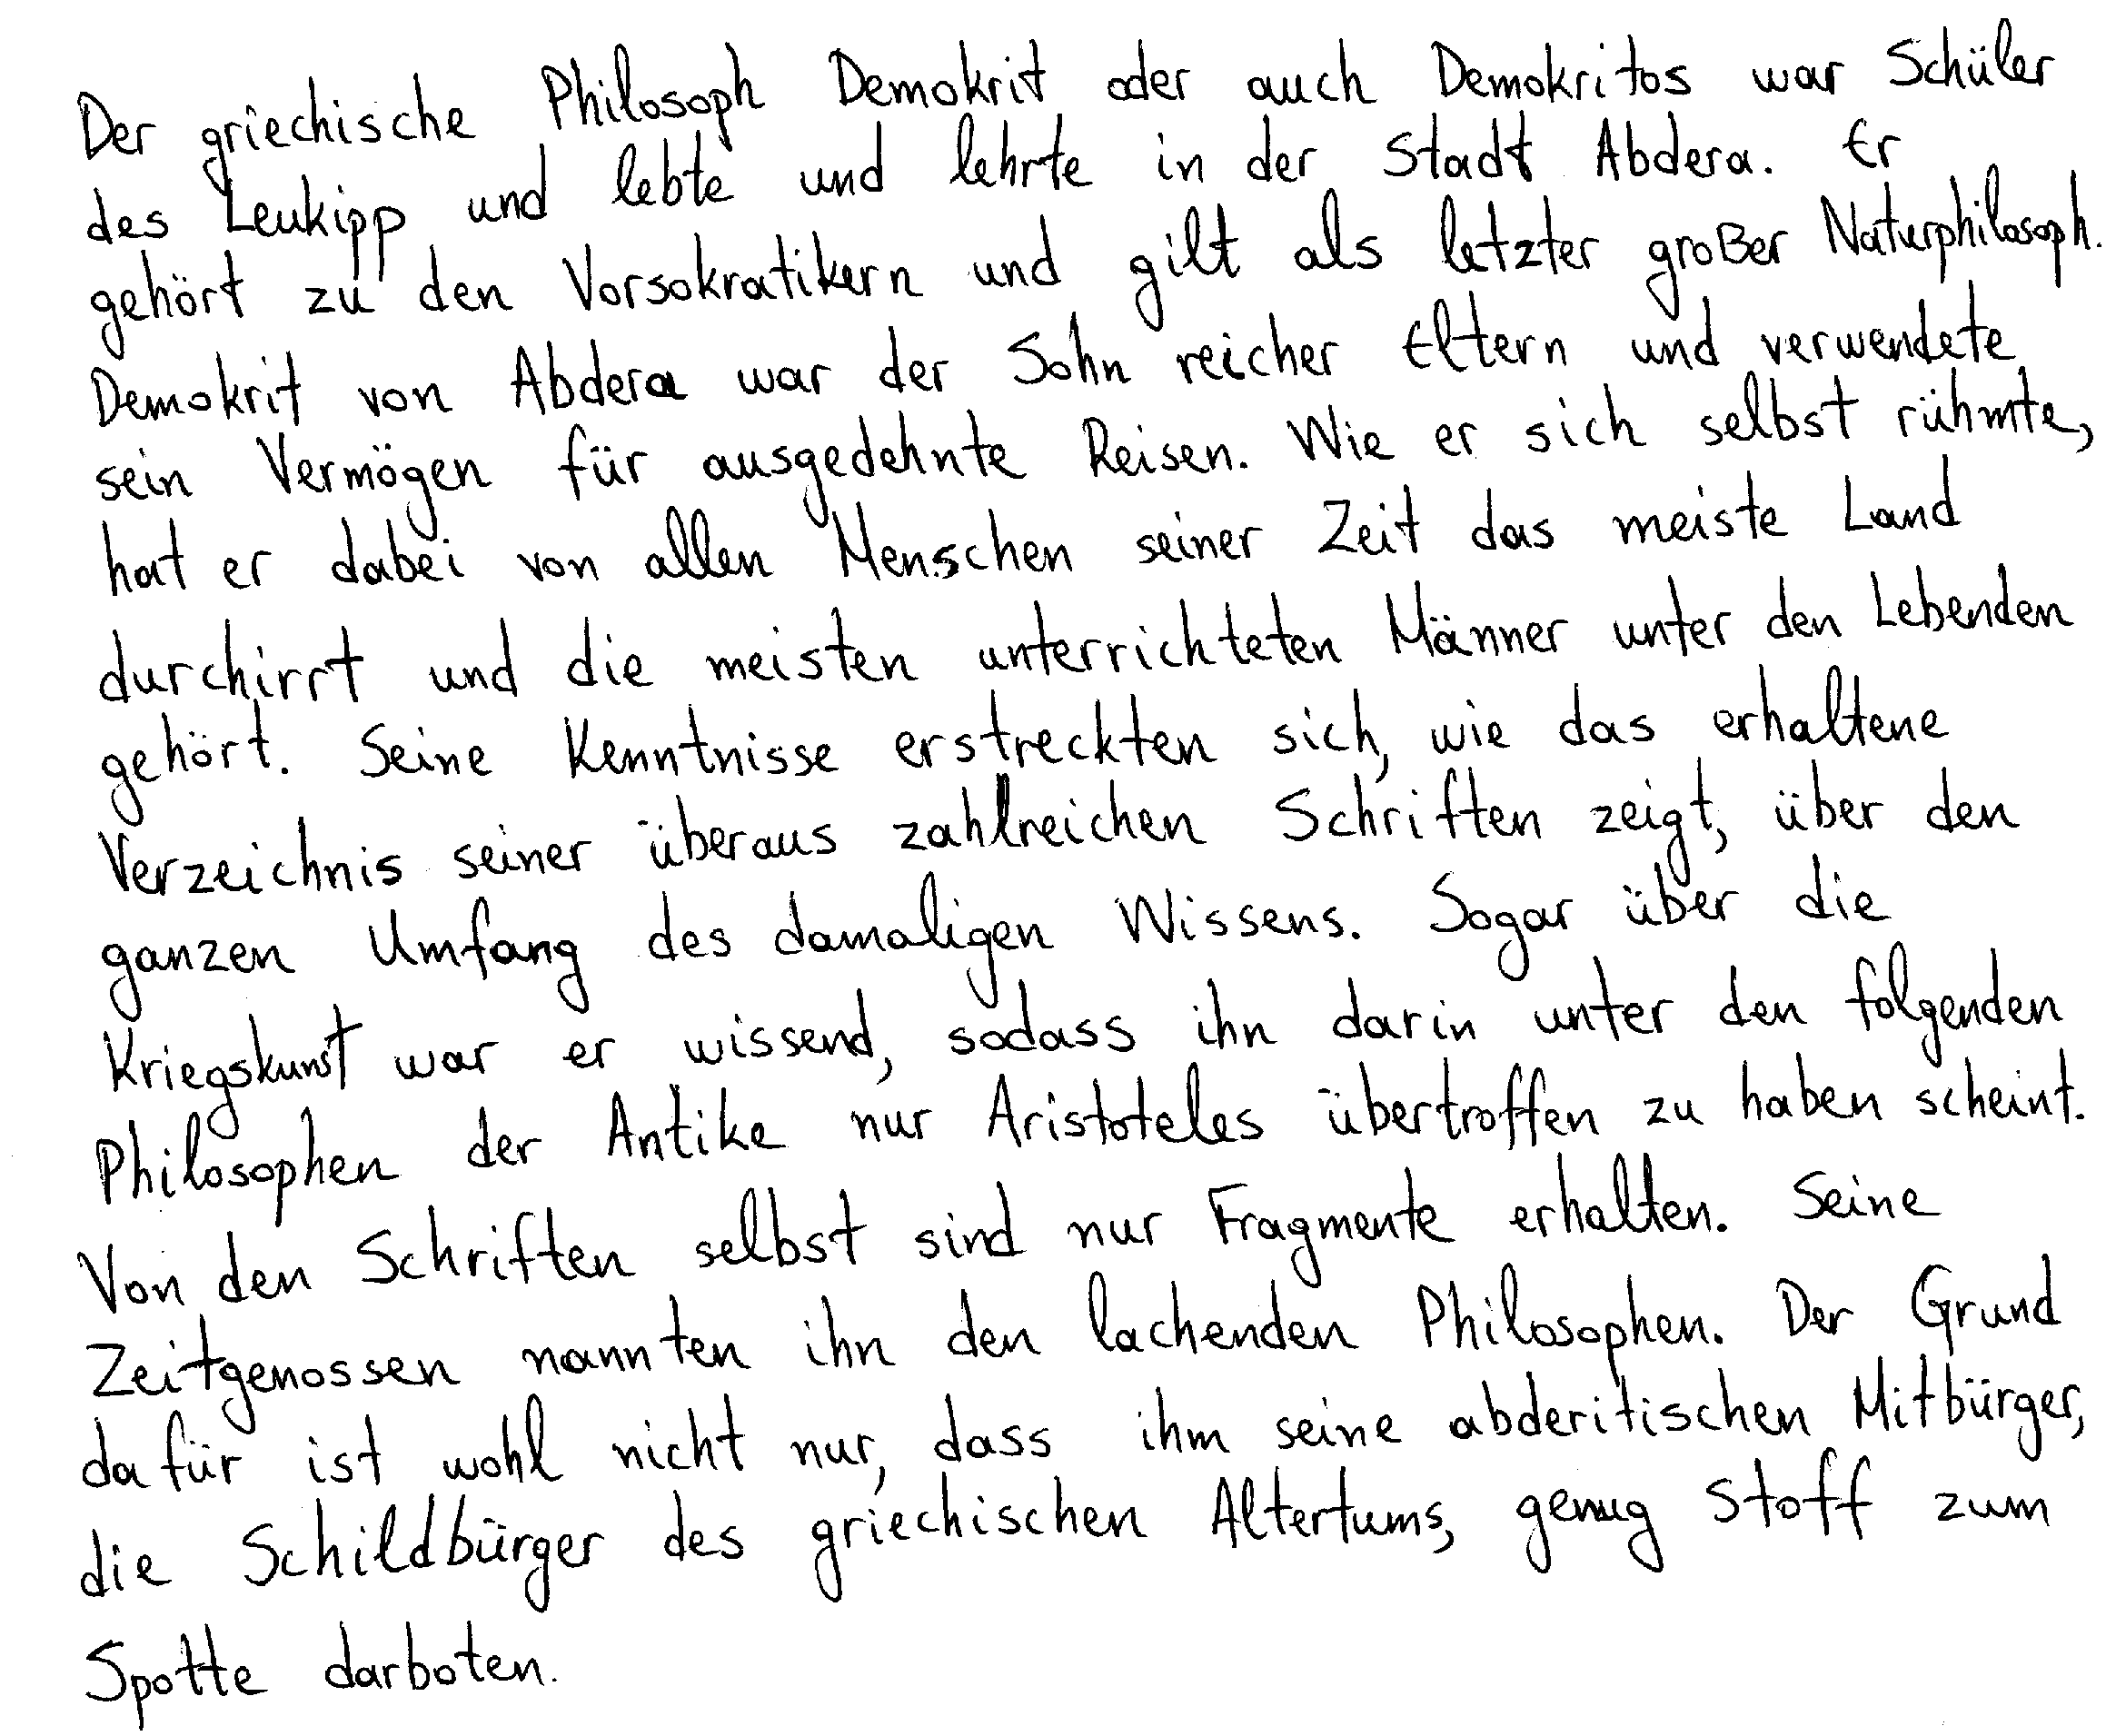 Der griechische Philosoph Demokrit oder auch Demokritos war Schüler
des Leukipp und lebte und lehrte in der Stadt Abdera. Er
gehört zu den Vorsokratikern und gilt als letzter großer Naturphilosoph.
Demokrit von Abdera war der Sohn reicher Eltern und verwendete
sein Vermögen für ausgedehnte Reisen. Wie er sich selbst rühmte,
hat er dabei von allen Menschen seiner Zeit das meiste Land
durchirrt und die meisten unterrichteten Männer unter den Lebenden
gehört. Seine Kenntnisse erstreckten sich, wie das erhaltene
Verzeichnis seiner überaus zahlreichen Schriften zeigt, über den
ganzen Umfang des damaligen Wissens. Sogar über die
Kriegskunst war er wissend, sodass ihn darin unter den folgenden
Philosophen der Antike nur Aristoteles übertroffen zu haben scheint.
Von den Schriften selbst sind nur Fragmente erhalten. Seine
Zeitgenossen nannten ihn den lachenden Philosophen. Der Grund
dafür ist wohl nicht nur, dass ihm seine abderitischen Mitbürger,
die Schildbürger des griechischen Altertums, genug Stoff zum
Spotte darboten.